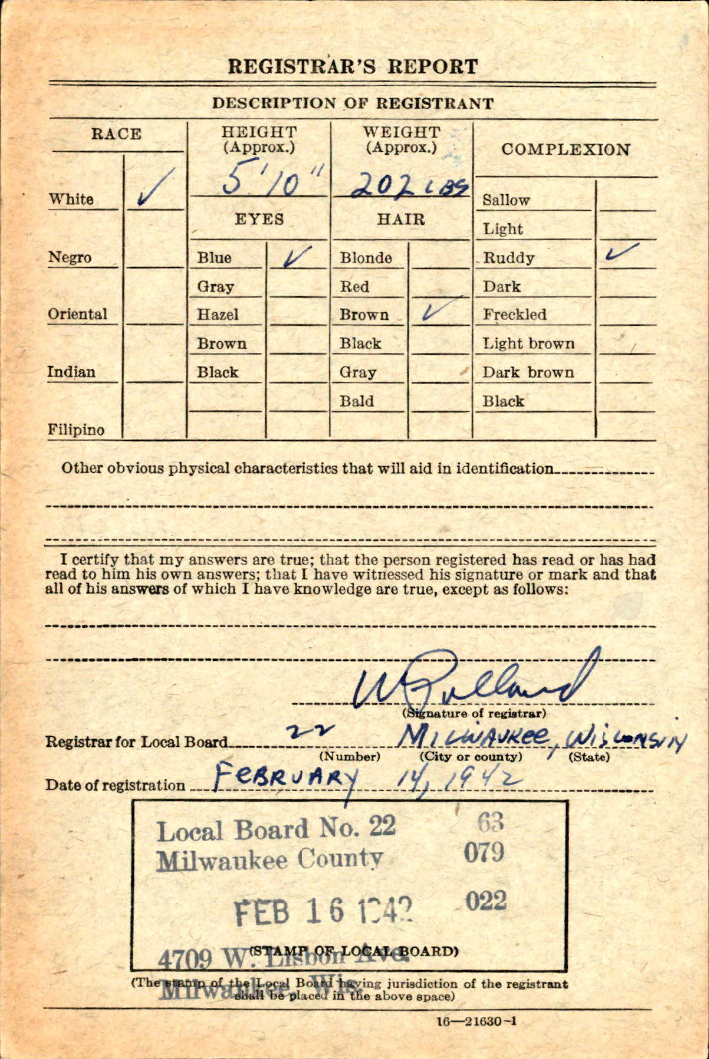 REGISTRAR'S REPORT
DESCRIPTION OF REGISTRANT
RACE
HEIGHT
(Approx.)
WEIGHT
(Approx.)
COMPLEXION
5'10"
202 LBS
White ✓
EYES
HAIR
Sallow
Light
Negro
Blue ✓
Blonde
Ruddy ✓
Gray
Red
Dark
Oriental
Hazel
Brown ✓
Freckled
Brown
Black
Light brown
Indian
Black
Gray
Dark brown
Bald
Black
Filipino
Other obvious physical characteristics that will aid in identification
I certify that my answers are true; that the person registered has read or has had
read to him his own answers; that I have witnessed his signature or mark and that
all of his answers of which I have knowledge are true, except as follows:
(Signature of registrar)
Registrar for Local Board 22 MILWAUKEE, WISCONSIN
(Number) (City or county) (State)
Date of registration FEBRUARY 14, 1942
Local Board No. 22 63
Milwaukee County 079
FEB 16 1942 022
(STAMP OF LOCAL BOARD)
4709 W. Lisbon Ave.
Milwaukee, Wis.
(The stamp of the Local Board having jurisdiction of the registrant
shall be placed in the above space)
16—21630-1